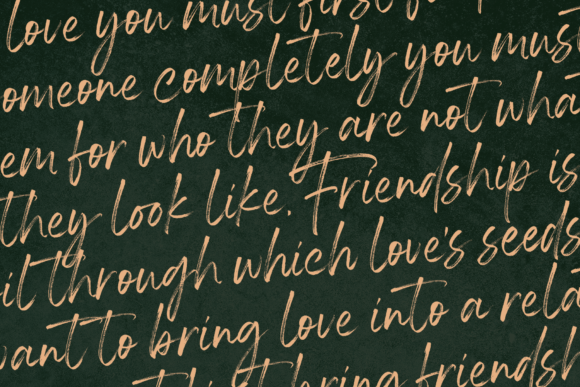 love you must first
omeone completely you must
em for who they are not wha
they look like. Friendship is
il through which love's seeds
want to bring love into a rela
bring friendsh